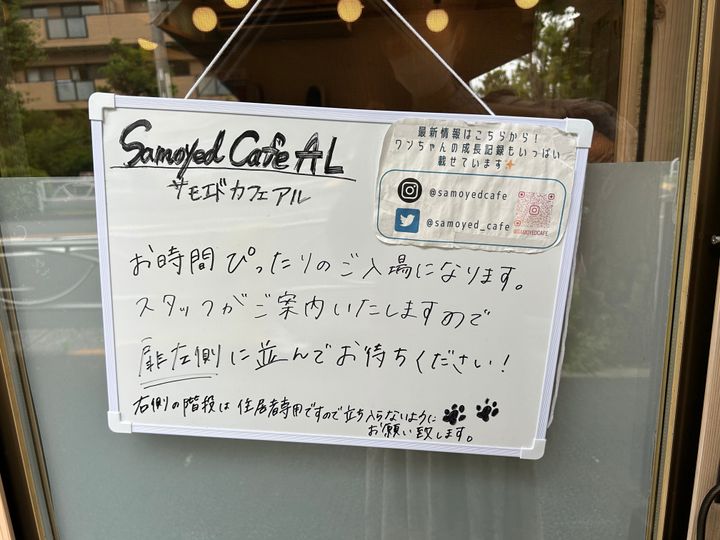 Samoyed Cafe AL
サモエドカフェアル
最新情報はこちらから！
ワンちゃんの成長記録もいっぱい
載せています
@samoyedcafe
@samoyed_cafe
@SAMOYEDCAFE
お時間ぴったりのご入場になります。
スタッフがご案内いたしますので
扉左側に並んでお待ちください！
右側の階段は住居者専用ですので立ち入らないように
お願い致します。